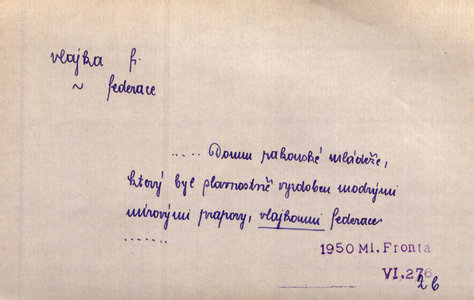 vlajka f.
~ federace
..... Domu rakouské mládeže,
který byl slavnostně vyzdoben modrými
mírovými prapory, vlajkami federace
......
1950 Ml. Fronta
VI. 276
26